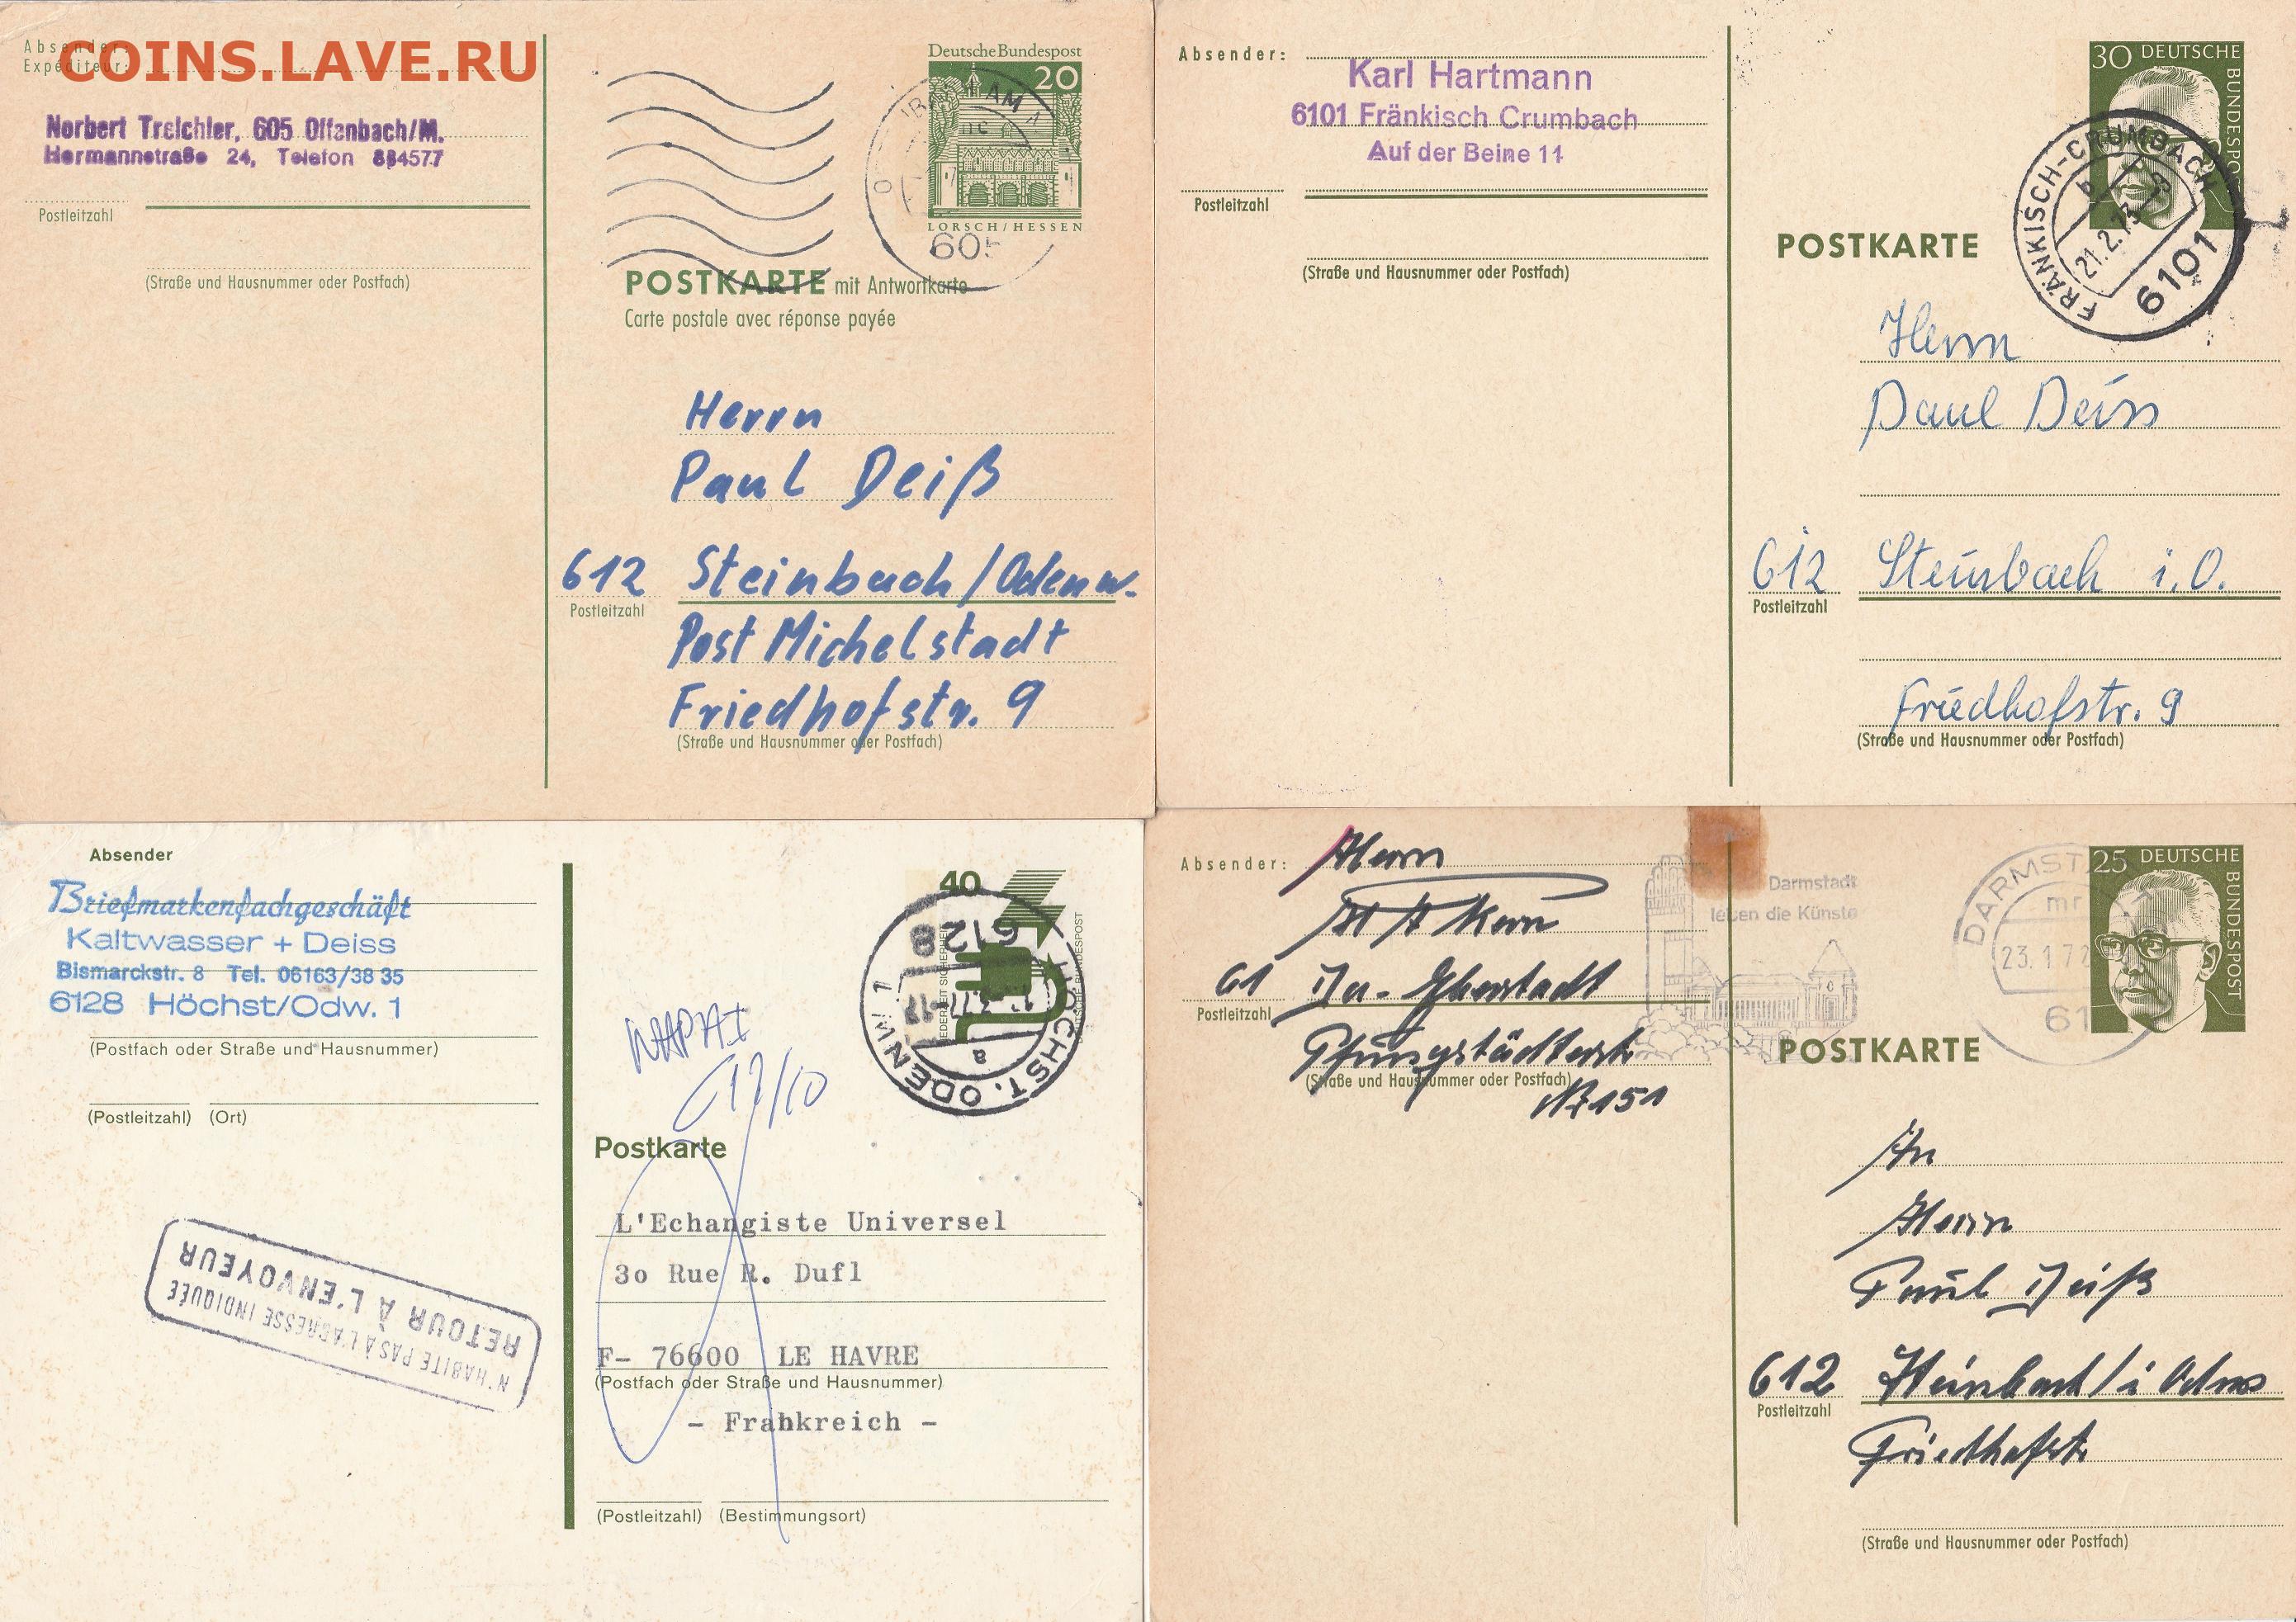 COINS.LAVE.RU
Absender:
Expéditeur:
Norbert Treichler, 605 Offenbach/M.
Hermannstraße 24, Telefon 884577
Postleitzahl
(Straße und Hausnummer oder Postfach)
Deutsche Bundespost
20
LORSCH/HESSEN
AM
605
POSTKARTE mit Antwortkarte
Carte postale avec réponse payée
Herrn
Paul Deiß
612 Steinbach/Odenw.
Postleitzahl
Post Michelstadt
Friedhofstr. 9
(Straße und Hausnummer oder Postfach)
Absender:
Karl Hartmann
6101 Fränkisch Crumbach
Auf der Beine 11
Postleitzahl
(Straße und Hausnummer oder Postfach)
30 DEUTSCHE
BUNDESPO
FRÄNKISCH-CRUMBACH
b
21.2.73
6101
POSTKARTE
Herrn
Paul Deiss
612 Steinbach i.O.
Postleitzahl
Friedhofstr. 9
(Straße und Hausnummer oder Postfach)
Absender
Briefmarkenfachgeschäft
Kaltwasser + Deiss
Bismarckstr. 8 Tel. 06163/38 35
6128 Höchst/Odw. 1
(Postfach oder Straße und Hausnummer)
(Postleitzahl) (Ort)
N'HABITE PAS À L'ADRESSE INDIQUÉE
RETOUR À L'ENVOYEUR
40
6128
HÖCHST, ODENW 1
a
17/10
Postkarte
L'Echangiste Universel
3o Rue R. Dufl
F- 76600 LE HAVRE
(Postfach oder Straße und Hausnummer)
- Frankreich -
(Postleitzahl) (Bestimmungsort)
Absender:
Herrn
Kern
61 Da-Eberstadt
Postleitzahl
Pfungstädterstr
(Straße und Hausnummer oder Postfach)
Nr 151
Darmstadt
leben die Künste
DARMST
mr
23.1.72
61
25 DEUTSCHE
BUNDESPOST
POSTKARTE
An
Herrn
Paul Deiß
612 Steinbach/i Odw
Postleitzahl
Friedhofstr
(Straße und Hausnummer oder Postfach)